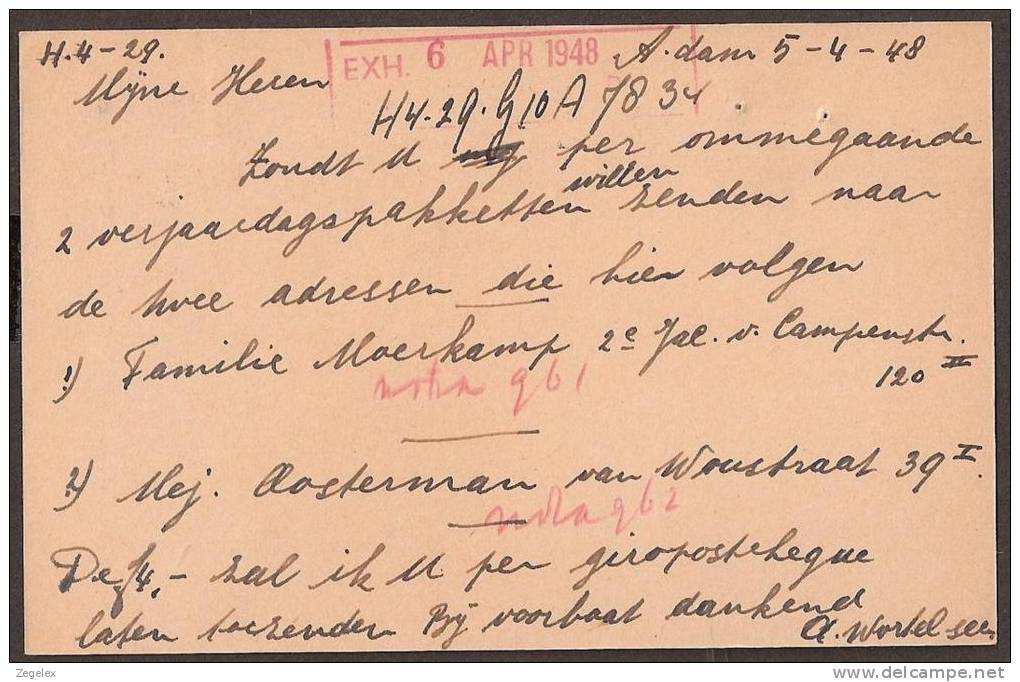 H.4-29.
EXH. 6 APR 1948
A.dam 5-4-48
Mijne Heren
H4.29.G10A 7834
Zondt U per ommegaande
willen
2 verjaardagspakketten zenden naar
de twee adressen die hier volgen
1) Familie Moerkamp 2e Jac. v. Campenstr.
120 II
nota 961
2) Mej. Oosterman van Woustraat 39 I.
nota 962
De f4,- zal ik U per giropostcheque
laten toezenden Bij voorbaat dankend
A. Wortel
Zegelex
delcampe.net